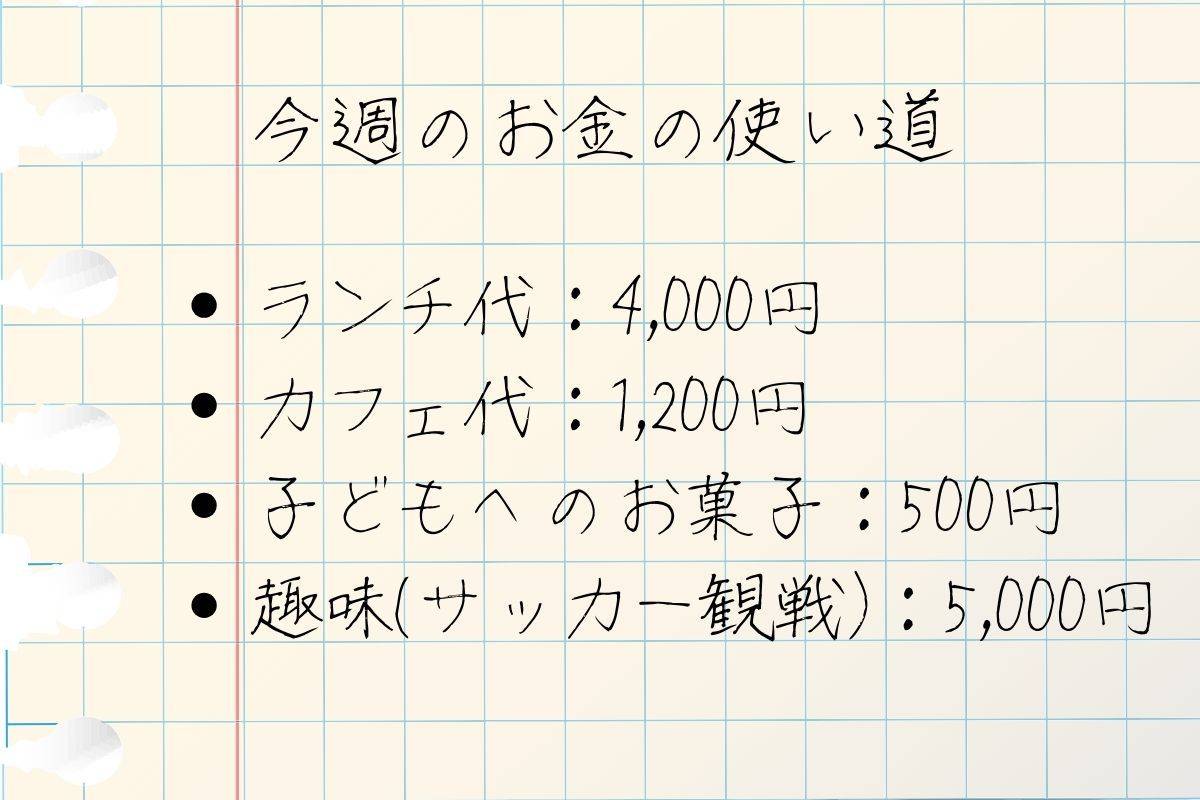 今週のお金の使い道
● ランチ代：4,000円
● カフェ代：1,200円
● 子どもへのお菓子：500円
● 趣味(サッカー観戦)：5,000円